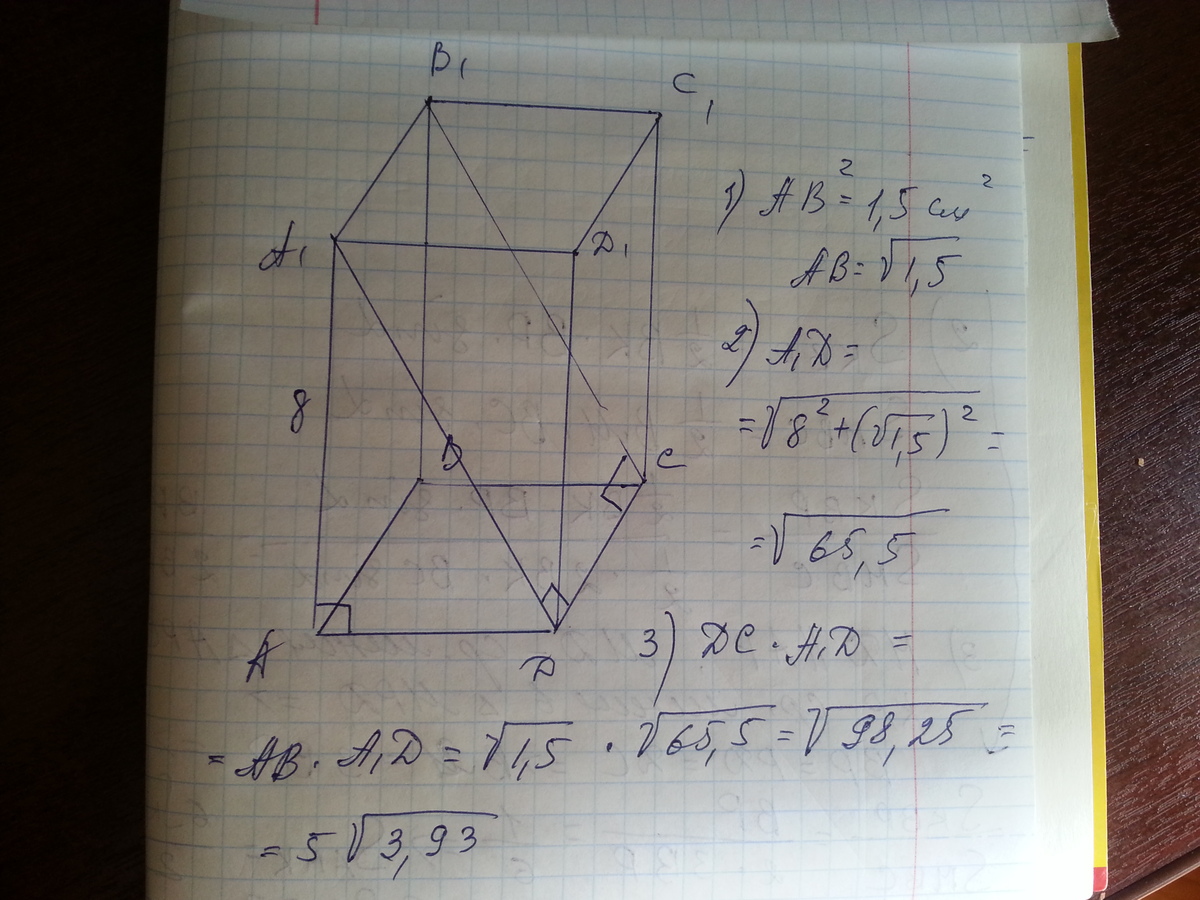 B₁
C₁
A₁
D₁
8
D
C
A
D
1) AB² = 1,5 см²
AB = √1,5
2) A₁D =
= √(8² + (√1,5)²) =
= √65,5
3) DC · A₁D =
= AB · A₁D = √1,5 · √65,5 = √98,25 =
= 5√3,93